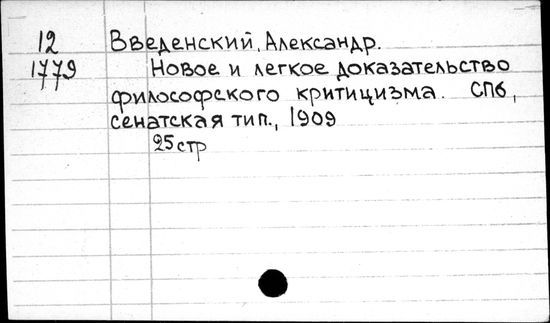 12 Введенский, Александр.
1779 Новое и легкое доказательство
философского критицизма. СПб,
сенатская тип., 1909
25 стр